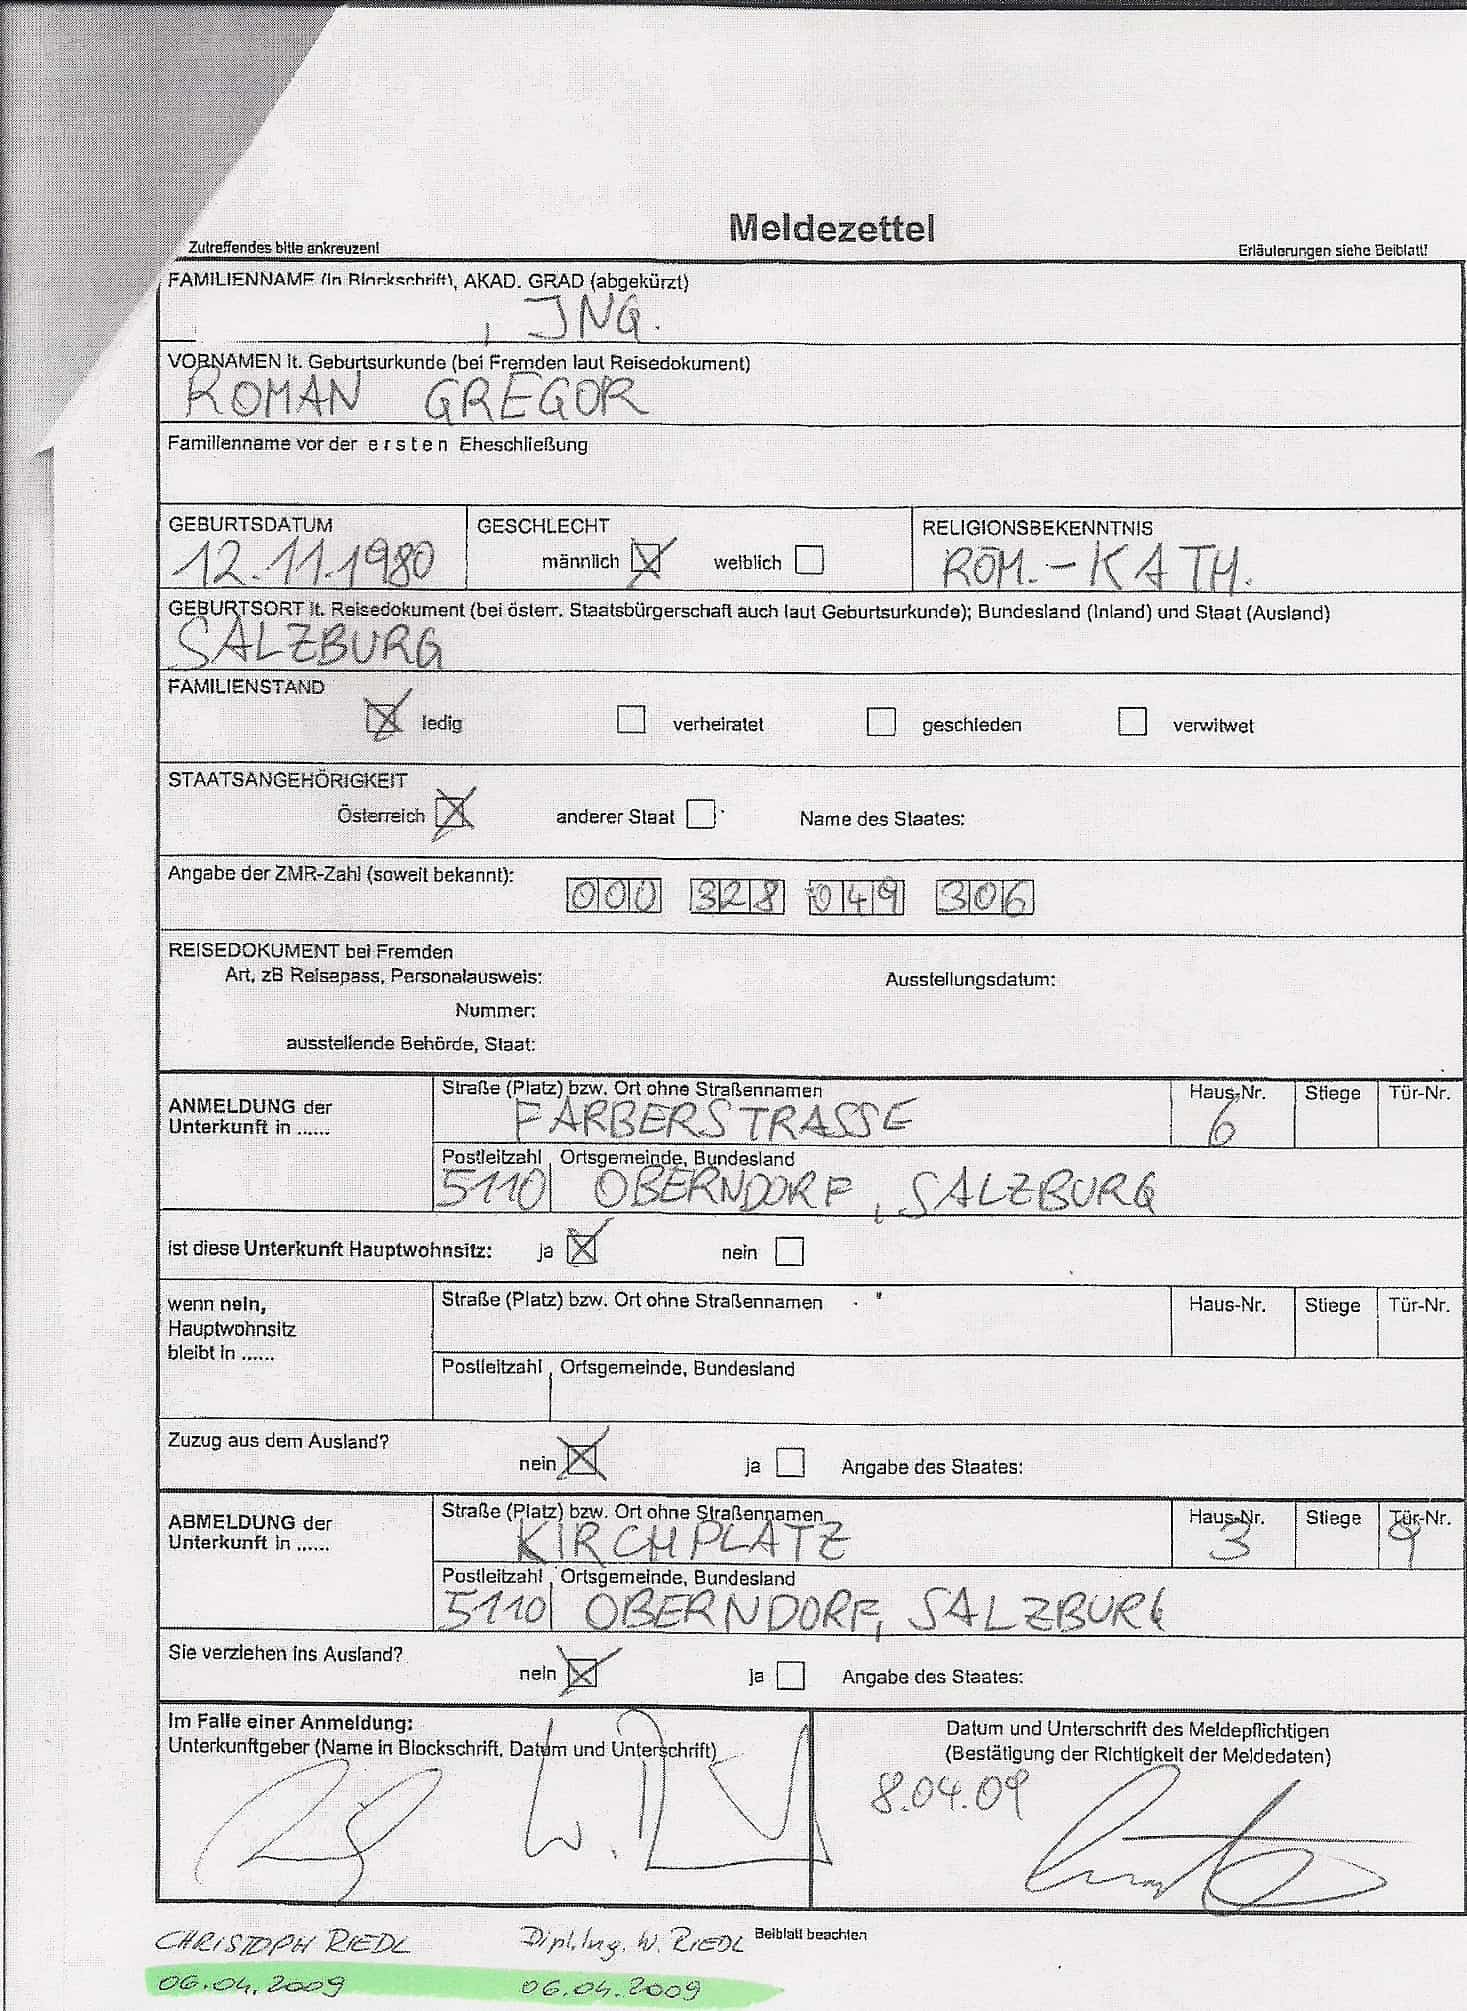 Meldezettel
Zutreffendes bitte ankreuzen! Erläuterungen siehe Beiblatt!
FAMILIENNAME (in Blockschrift), AKAD. GRAD (abgekürzt)
, ING.
VORNAMEN lt. Geburtsurkunde (bei Fremden laut Reisedokument)
ROMAN GREGOR
Familienname vor der ersten Eheschließung
GEBURTSDATUM GESCHLECHT RELIGIONSBEKENNTNIS
12.11.1980 männlich weiblich RÖM.-KATH.
GEBURTSORT lt. Reisedokument (bei österr. Staatsbürgerschaft auch laut Geburtsurkunde); Bundesland (Inland) und Staat (Ausland)
SALZBURG
FAMILIENSTAND
ledig verheiratet geschieden verwitwet
STAATSANGEHÖRIGKEIT
Österreich anderer Staat Name des Staates:
Angabe der ZMR-Zahl (soweit bekannt): 000 328 049 306
REISEDOKUMENT bei Fremden
Art, zB Reisepass, Personalausweis: Ausstellungsdatum:
Nummer:
ausstellende Behörde, Staat:
ANMELDUNG der Unterkunft in ......
Straße (Platz) bzw. Ort ohne Straßennamen Haus-Nr. Stiege Tür-Nr.
FÄRBERSTRASSE 6
Postleitzahl Ortsgemeinde, Bundesland
5110 OBERNDORF, SALZBURG
ist diese Unterkunft Hauptwohnsitz: ja nein
wenn nein, Hauptwohnsitz bleibt in ......
Straße (Platz) bzw. Ort ohne Straßennamen Haus-Nr. Stiege Tür-Nr.
Postleitzahl Ortsgemeinde, Bundesland
Zuzug aus dem Ausland? nein ja Angabe des Staates:
ABMELDUNG der Unterkunft in ......
Straße (Platz) bzw. Ort ohne Straßennamen Haus-Nr. Stiege Tür-Nr.
KIRCHPLATZ 3 9
Postleitzahl Ortsgemeinde, Bundesland
5110 OBERNDORF, SALZBURG
Sie verziehen ins Ausland? nein ja Angabe des Staates:
Im Falle einer Anmeldung:
Unterkunftgeber (Name in Blockschrift, Datum und Unterschrift)
Datum und Unterschrift des Meldepflichtigen
(Bestätigung der Richtigkeit der Meldedaten)
8.04.09
CHRISTOPH RIEDL Dipl.Ing. W. RIEDL Beiblatt beachten
06.04.2009 06.04.2009